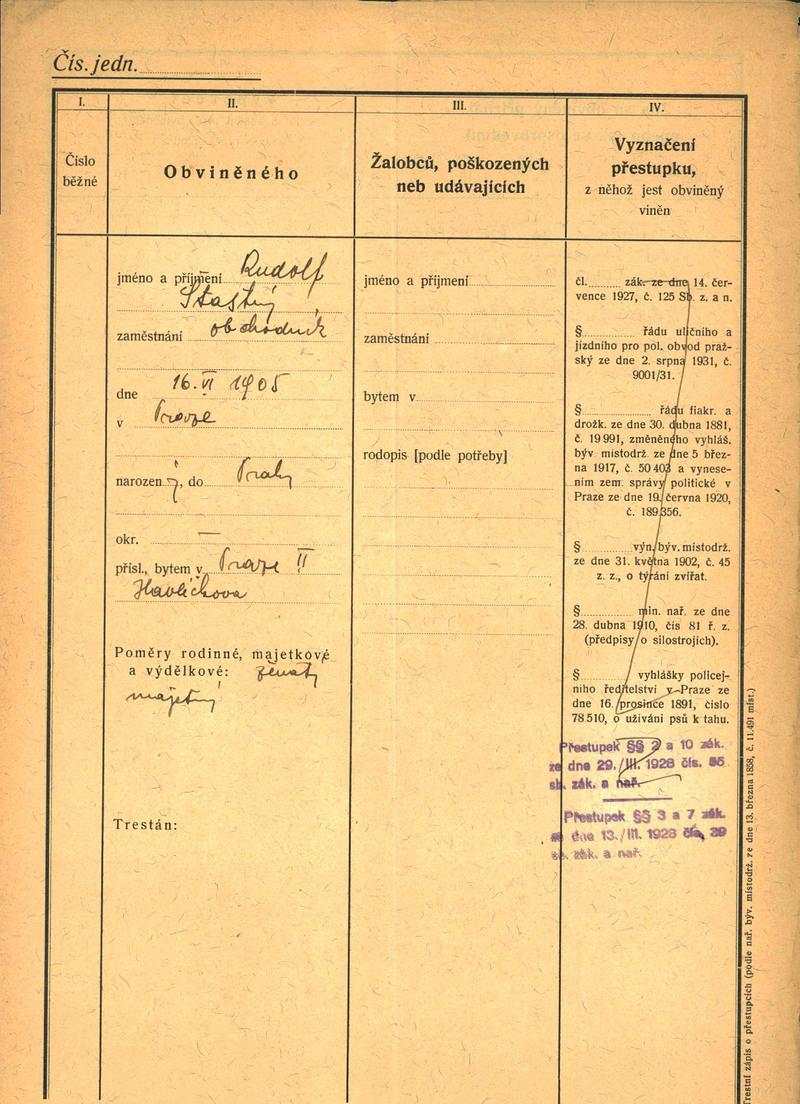 Čís. jedn.
I.
Číslo
běžné
II.
Obviněného
III.
Žalobců, poškozených
neb udávajících
IV.
Vyznačení
přestupku,
z něhož jest obviněný
viněn
jméno a příjmení Rudolf
Šťastný
zaměstnání obchodník
dne 16. VI 1905
v Praze
narozen ý, do Prahy
okr. —
přísl., bytem v Praze II
Havlíčkova
Poměry rodinné, majetkové
a výdělkové: ženatý
majetný
Trestán:
jméno a příjmení
zaměstnání
bytem v
rodopis [podle potřeby]
čl. zák. ze dne 14. čer-
vence 1927, č. 125 Sb. z. a n.
§ řádu uličního a
jízdního pro pol. obvod praž-
ský ze dne 2. srpna 1931, č.
9001/31.
§ řádu fiakr. a
drožk. ze dne 30. dubna 1881,
č. 19 991, změněného vyhláš.
býv. místodrž. ze dne 5 břez-
na 1917, č. 50 403 a vynese-
ním zem. správy politické v
Praze ze dne 19. června 1920,
č. 189.356.
§ výn. býv. místodrž.
ze dne 31. května 1902, č. 45
z. z., o týrání zvířat.
§ min. nař. ze dne
28. dubna 1910, čís 81 ř. z.
(předpisy o silostrojích).
§ vyhlášky policej-
ního ředitelství v Praze ze
dne 16. prosince 1891, číslo
78 510, o užívání psů k tahu.
Přestupek §§ 2 a 10 zák.
ze dne 29./III. 1928 čís.
sb. zák. a nař.
Přestupek §§ 3 a 7 zák.
dne 13./III. 1928 čís. 39
sb. zák. a nař.
Trestní zápis o přestupcích (podle nař. býv. místodrž. ze dne 13. března 1858, č. 11.491 míst.)